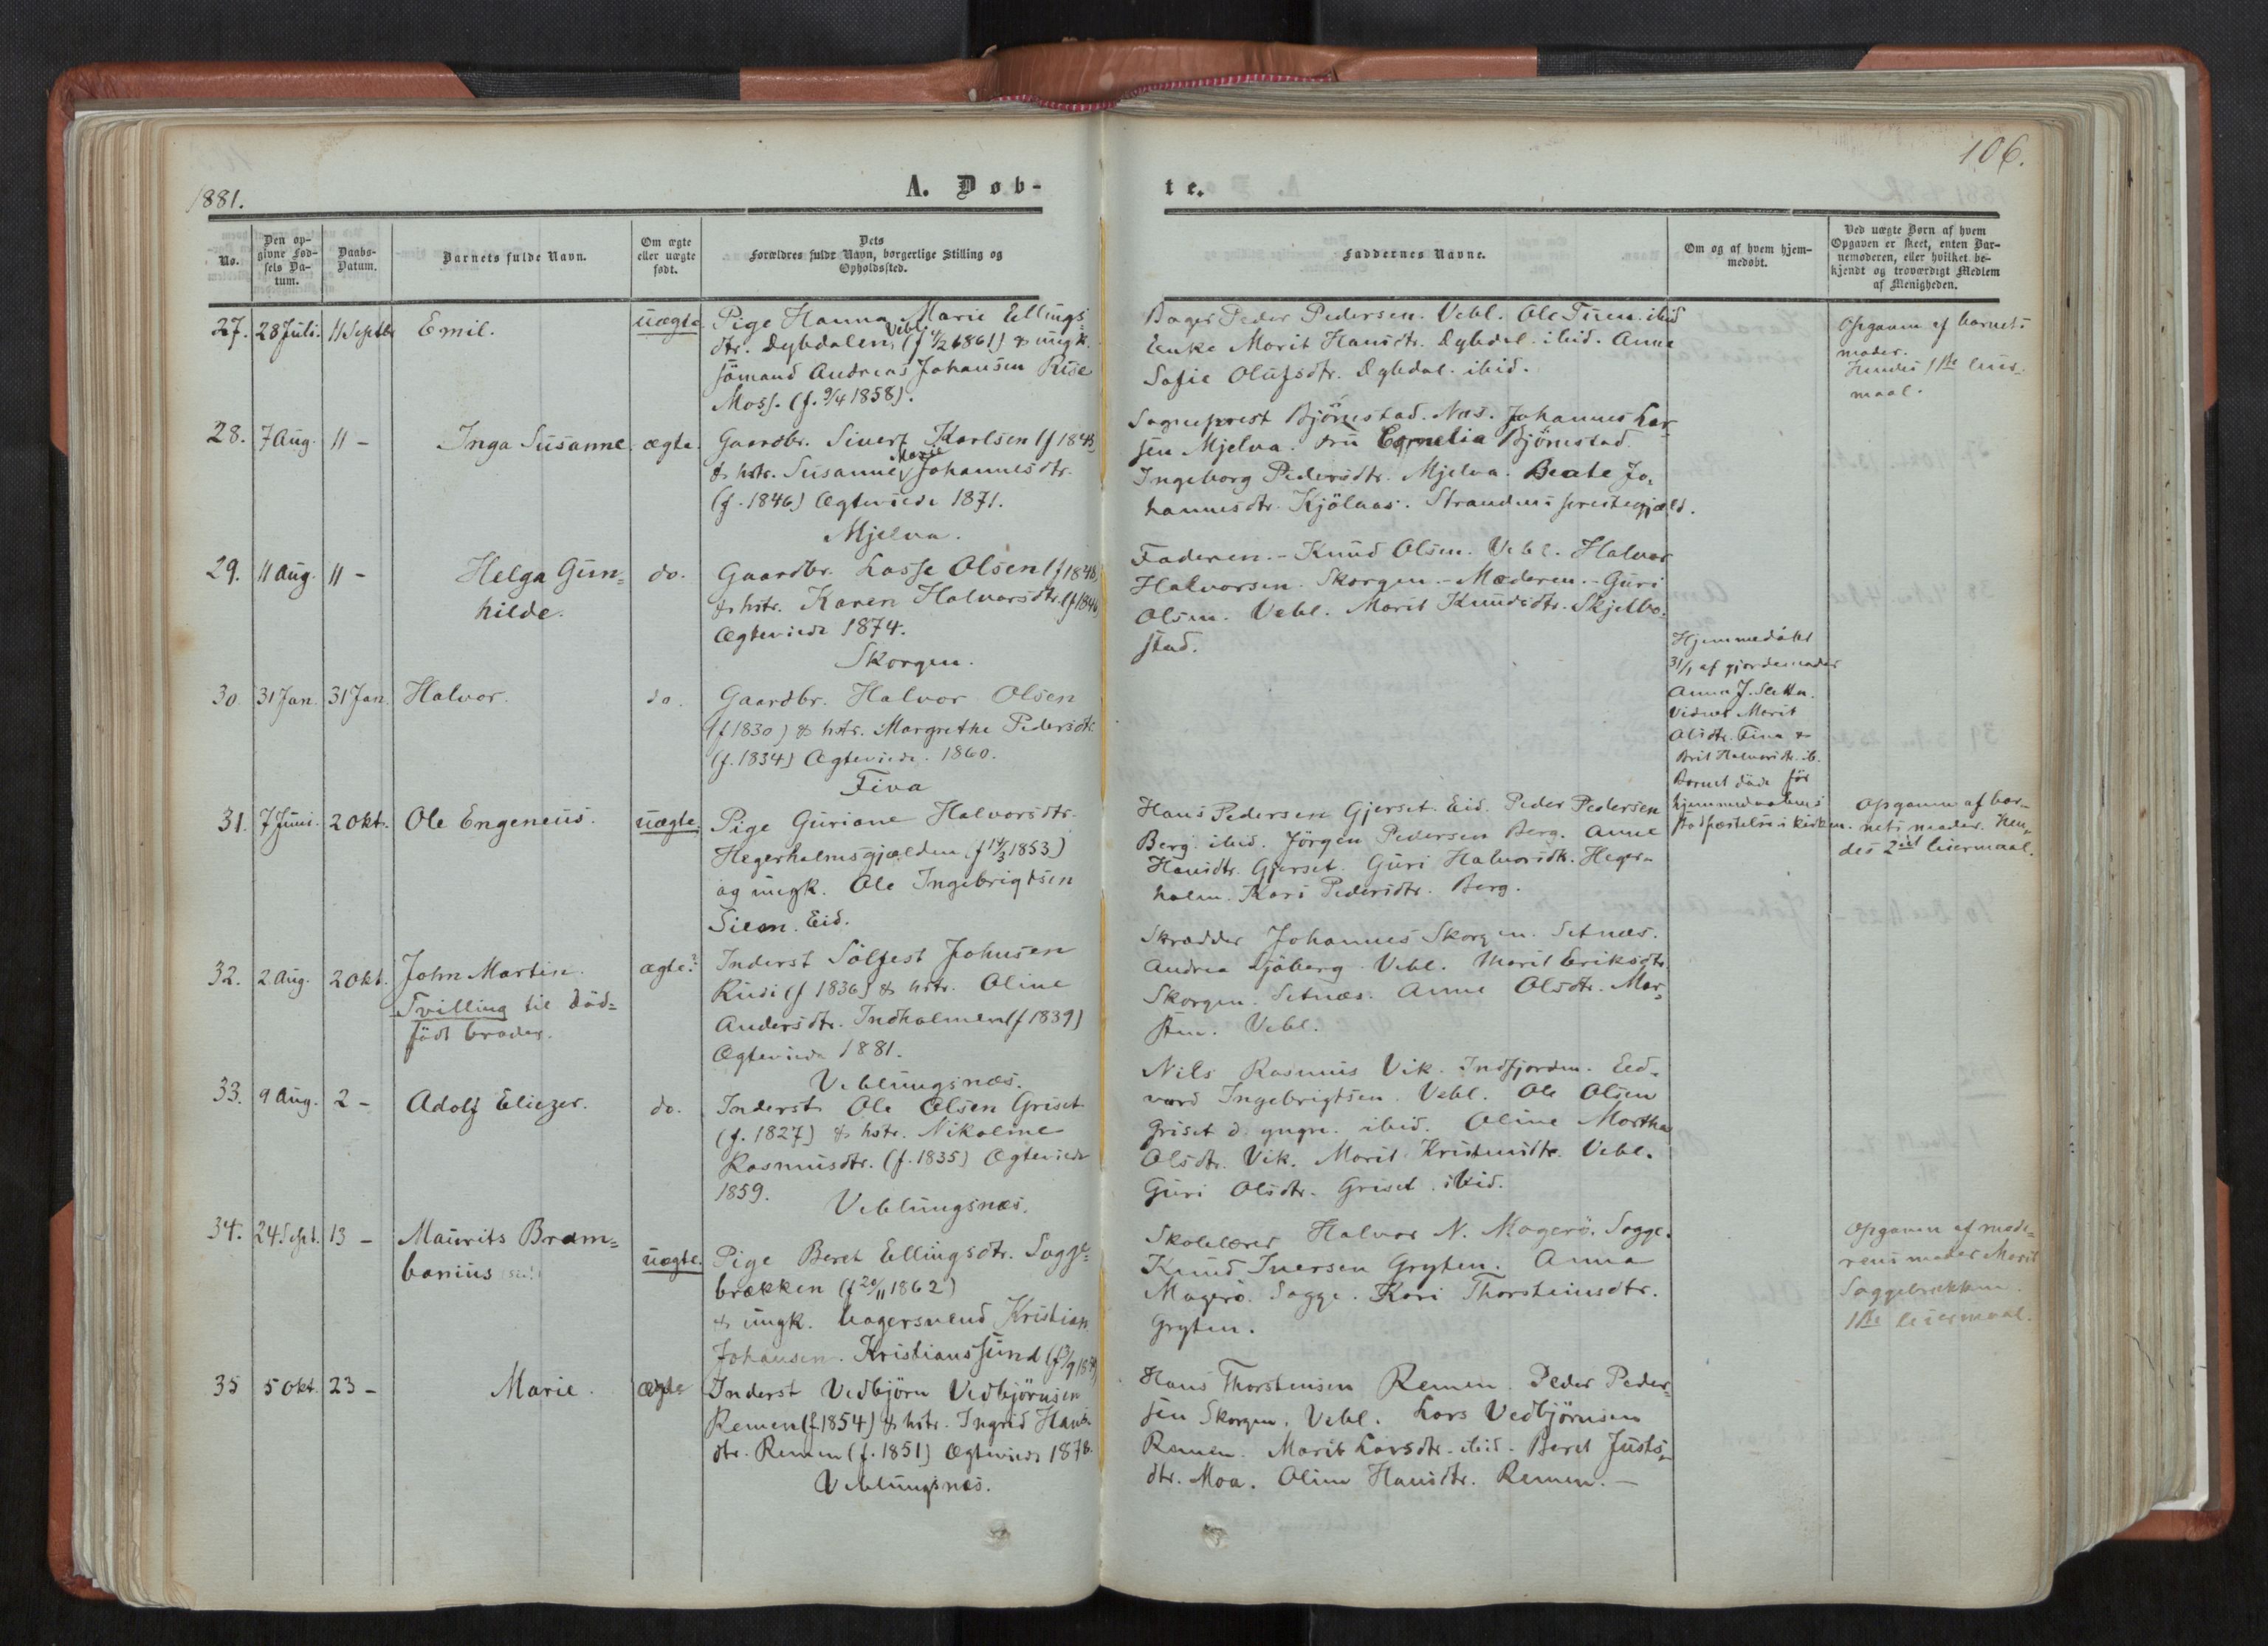 106.
1881.
A. Døb-
te.
No.
Den op-
givne Fød-
sels Da-
tum.
Daabs-
Datum.
Barnets fulde Navn.
Om ægte
eller uægte
født.
Dets
Forældres fulde Navn, borgerlige Stilling og
Opholdssted.
Faddernes Navne.
Om og af hvem hjem-
medøbt.
Ved uægte Børn af hvem
Opgaven er skeet, enten Bar-
nemoderen, eller hvilket be-
kjendt og troværdigt Medlem
af Menigheden.
27. 28 Juli. 11 Septbr Emil. uægte.
Pige Hanna Marie Ellings-
dtr. Dybdalen, Vebl. (f 4/2 1861) & ungk.
sömand Andreas Johansen Rise
Moss. (f. 9/4 1858).
Bager Peder Pedersen. Vebl. Ole Tuen. ibid
Enke Marit Hansdtr. Dybdal. ibid. Anne
Sofie Olufsdtr. Dybdal. ibid.
Opgaven af barnets
moder.
Hendes 1ste leier-
maal.
28. 7 Aug. 11 - Inga Susanne. ægte.
Gaardbr. Sivert Karlsen (f 1848)
& hstr. Susanne Marie Johannesdtr.
(f. 1846) Ægteviede 1871.
Mjelva.
Sogneprest Björnstad. Næs. Johannes Lar-
sen Mjelva. Fru Cornelia Björnstad.
Ingeborg Pedersdtr. Mjelva. Beate Jo-
hannesdtr. Kjölaas. Strandens prestegjæld.
29. 11 Aug. 11 - Helga Gun-
hilde. do.
Gaardbr. Lasse Olsen (f 1848)
& hstr. Karen Halvorsdtr. (f 1846)
Ægteviede 1874.
Skorgen.
Faderen. - Knud Olsen. Vebl. Halvor
Halvorsen. Skorgen. - Moderen. - Guri
Olsen. Vebl. Marit Knudsdtr. Skjelbo-
stad.
30. 31 Jan. 31 Jan. Halvor. do.
Gaardbr. Halvor Olsen
(f 1830) & hstr. Margrethe Pedersdtr.
(f. 1834) Ægteviede. 1860.
Fiva
Hjemmedöbt
31/1 af gjordemoder
Anna J. Sletta.
Vidner Marit
Olsdtr. Fiva &
Brit Halvorsdtr. ib.
Barnet döde før
hjemmedaabens
stadfæstelse i kirken.
31. 7 Juni. 2 Okt. Ole Engeneus. uægte.
Pige Guriane Halvorsdtr.
Hegerholmsgjælden (f 14/3 1853)
og ungk. Ole Ingebrigtsen
Siem. Eid.
Hans Pedersen Gjerset. Eid. Peder Pedersen
Berg. ibid. Jörgen Pedersen Berg. Anne
Hansdtr. Gjerset. Guri Halvorsdtr. Heger-
holm. Kari Pedersdtr. Berg.
Opgaven af bar-
nets moder. Hen-
des 2det leiermaal.
32. 2 Aug. 2 Okt. John Martin.
Tvilling til död-
født broder. ægte?
Inderst Sölfest Johnsen
Rusi (f 1836) & hstr. Oline
Andersdtr. Indholmen (f 1839)
Ægteviede 1881.
Veblungsnæs.
Skrædder Johannes Skorgen. Setnæs.
Andrea Sjöberg. Vebl. Marit Eriksdtr.
Skorgen. Setnæs. Anne Olsdtr. Mar-
sten. Vebl.
33. 9 Aug. 2 - Adolf Eliezer. do.
Inderst Ole Olsen Griset
(f. 1827) & hstr. Nikoline
Rasmusdtr. (f. 1835) Ægteviede
1859.
Veblungsnæs.
Nils Rasmus Vik. Indfjorden. Ed-
vard Ingebrigtsen. Vebl. Ole Olsen
Griset d. yngre. ibid. Oline Martha
Olsdtr. Vik. Marit Kristensdtr. Vebl.
Guri Olsdtr. Griset. ibid.
34. 24 Sept. 13 - Maurits Bram-
banius (sic!) uægte.
Pige Beret Ellingsdtr. Sogge-
brækken (f 20/11 1862)
& ungk. bagersvend Kristian
Johansen. Kristianssund
Skolelærer Halvor N. Magerö. Sogge.
Knud Iversen Gryten. Anna
Magerö. Sogge. Kari Thorsteinsdtr.
Gryten.
Opgaven af mode-
rens moder Marit
Soggebrækken.
1ste leiermaal.
35 5 Okt. 23 - Marie. ægte
Inderst Vedbjörn Vedbjörnsen
Remen (f. 1854) & hstr. Ingrid Hans-
dtr. Remen (f. 1851) Ægteviede 1878.
Veblungsnæs.
Hans Thorstensen Remen. Peder Peder-
sen Skorgen. Vebl. Lars Vedbjörnsen
Remen. Marit Larsdtr. ibid. Beret Justs-
dtr. Moa. Oline Hansdtr. Remen. -